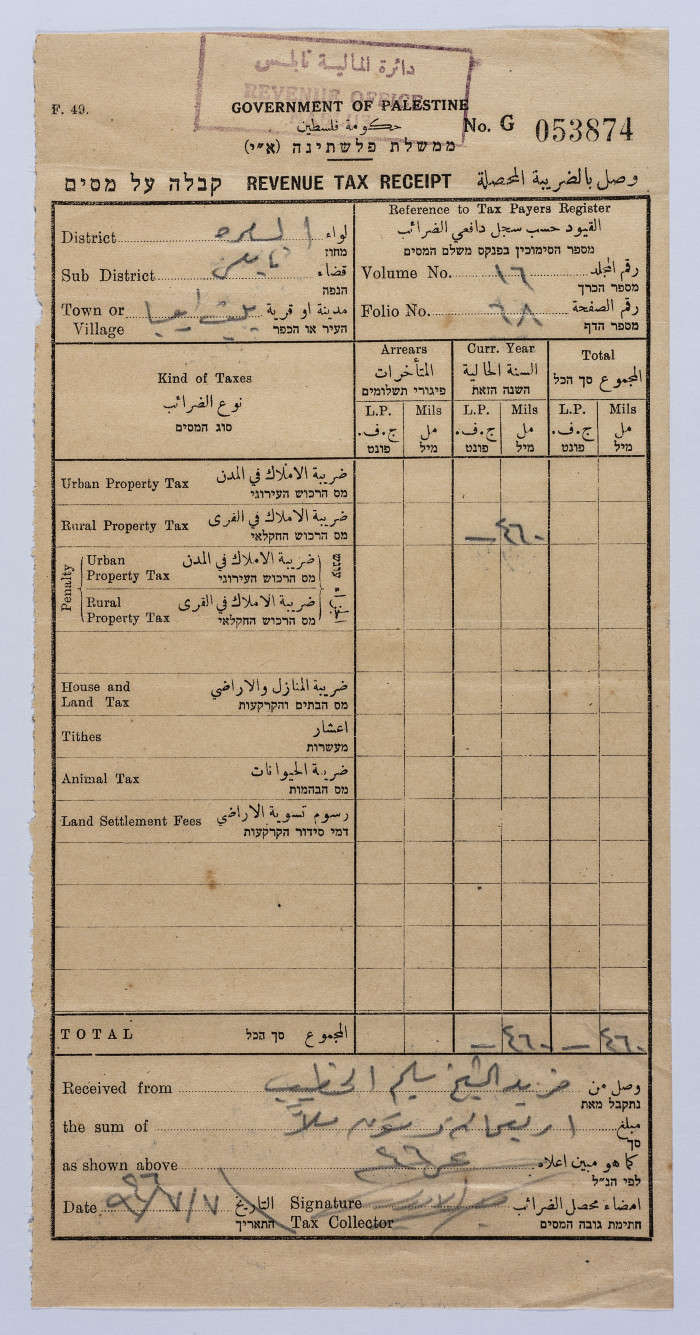 دائرة المالية نابلس
REVENUE OFFICE
F. 49.
GOVERNMENT OF PALESTINE
حكومة فلسطين
No. G 053874
ממשלת פלשתינה (א״י)
קבלה על מסים REVENUE TAX RECEIPT وصل بالضريبة المحصلة
Reference to Tax Payers Register
القيود حسب سجل دافعي الضرائب
מספר הסימוכין בפנקס משלם המסים
District لواء
מחוז
Sub District نابلس قضاء
הנפה
Town or Village مدينة او قرية
העיר או הכפר
Volume No. ١٦ رقم المجلد
מספר הכרך
Folio No. ٦٨ رقم الصفحة
מספר הדף
Kind of Taxes
نوع الضرائب
סוג המסים
Arrears
المتأخرات
פיגורי תשלומים
Curr. Year
السنة الحالية
השנה הזאת
Total
المجموع סך הכל
L.P. Mils L.P. Mils L.P. Mils
ج.ف. مل ج.ف. مل ج.ف. مل
פונט מיל פונט מיל פונט מיל
Urban Property Tax ضريبة الاملاك في المدن
מס הרכוש העירוני
Rural Property Tax ضريبة الاملاك في القرى
מס הרכוש החקלאי
— ٤٦٠
Penalty
Urban Property Tax ضريبة الاملاك في المدن
מס הרכוש העירוני
Rural Property Tax ضريبة الاملاك في القرى
מס הרכוש החקלאי
עונש
House and Land Tax ضريبة المنازل والاراضي
מס הבתים והקרקעות
Tithes اعشار
מעשרות
Animal Tax ضريبة الحيوانات
מס הבהמות
Land Settlement Fees رسوم تسوية الاراضي
דמי סידור הקרקעות
TOTAL סך הכל المجموع — ٤٦٠ — ٤٦٠
Received from فريد الشيخ سليم الخطيب وصل من
נתקבל מאת
the sum of اربعماية وستون ملاً مبلغ
סך
as shown above كما هو مبين اعلاه
לפי הנ״ל
Date ٧/٧/٤٦ التاريخ
התאריך
Signature Tax Collector امضاء محصل الضرائب
חתימת גובה המסים